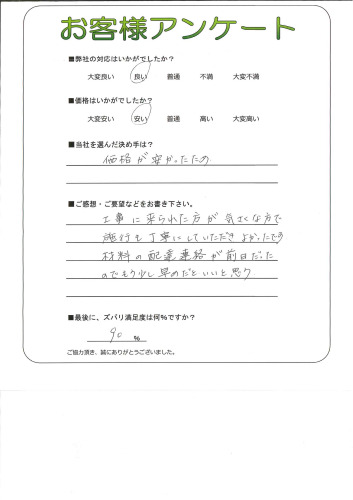 お客様アンケート
■弊社の対応はいかがでしたか？
大変良い 良い 普通 不満 大変不満
■価格はいかがでしたか？
大変安い 安い 普通 高い 大変高い
■当社を選んだ決め手は？
価格が安かったため
■ご感想・ご要望などをお書き下さい。
工事に来られた方が気さくな方で
施行も丁寧にしていただきよかったです
材料の配達連絡が前日だった
のでもう少し早めだといいと思う
■最後に、ズバリ満足度は何%ですか？
90 %
ご協力頂き、誠にありがとうございました。